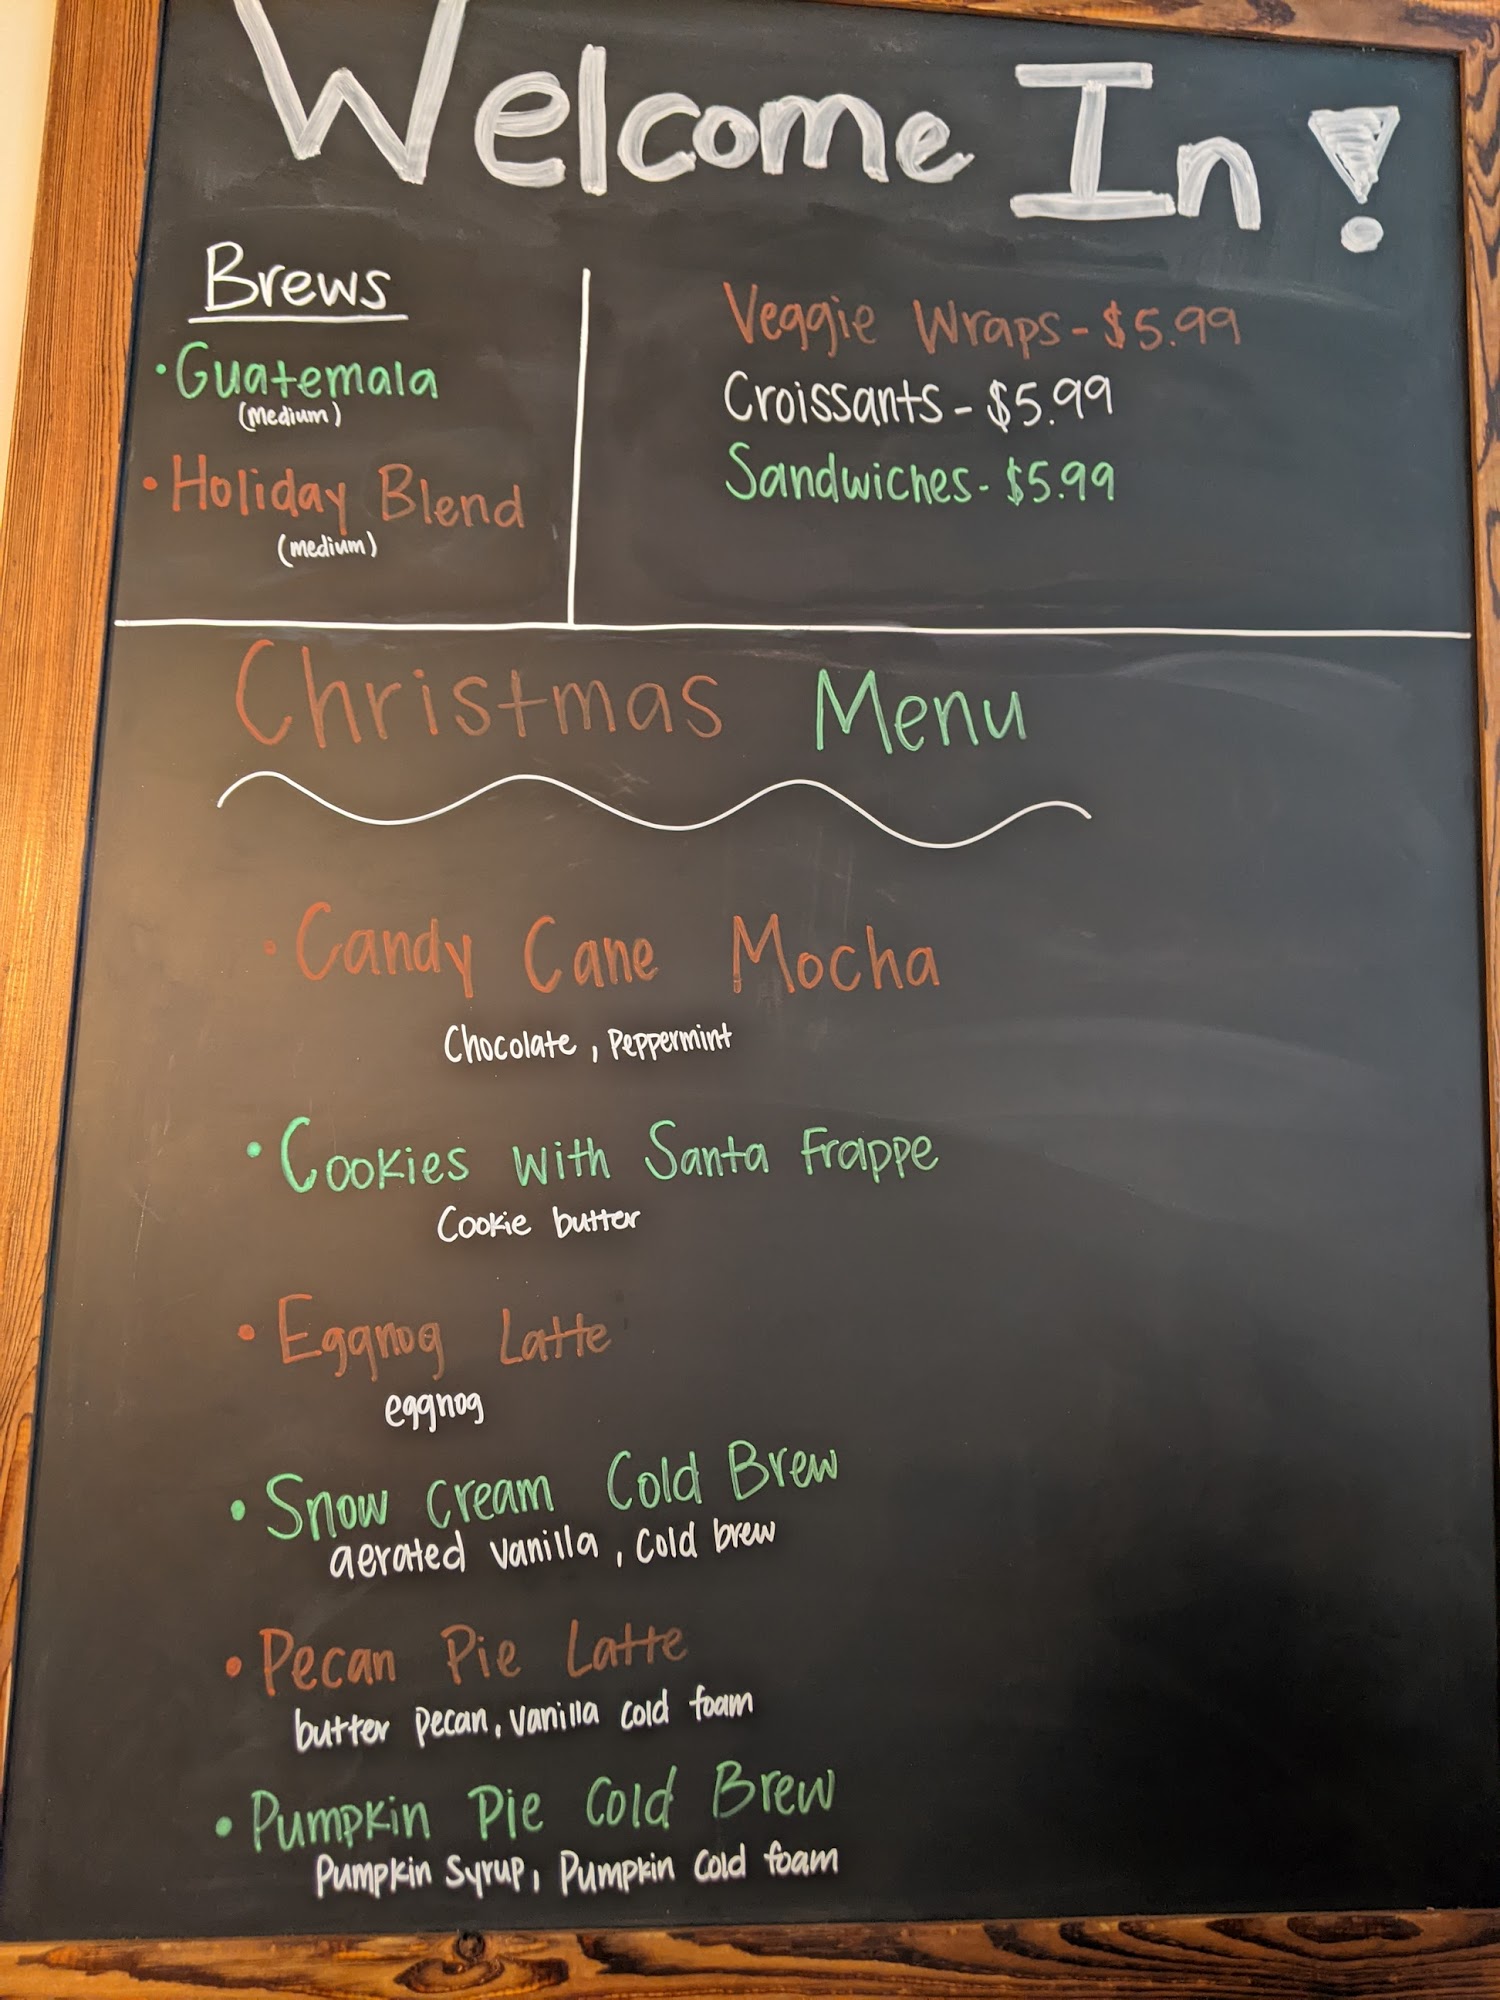 Welcome In!
Brews
• Guatemala
(medium)
• Holiday Blend
(medium)
Veggie Wraps - $5.99
Croissants - $5.99
Sandwiches - $5.99
Christmas Menu
• Candy Cane Mocha
Chocolate, Peppermint
• Cookies with Santa Frappe
Cookie butter
• Eggnog Latte
eggnog
• Snow Cream Cold Brew
aerated vanilla, cold brew
• Pecan Pie Latte
butter pecan, vanilla cold foam
• Pumpkin Pie Cold Brew
Pumpkin Syrup, Pumpkin cold foam